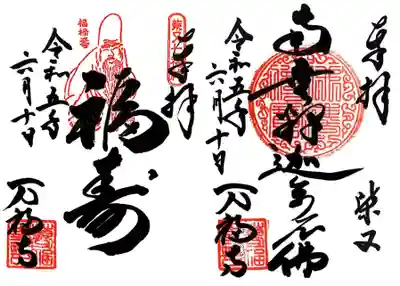 奉拝
柴又
南無釋迦牟尼佛
令和五年
六月十日
万福寺
奉拝
福寿
福禄寿
令和五年
六月十日
万福寺